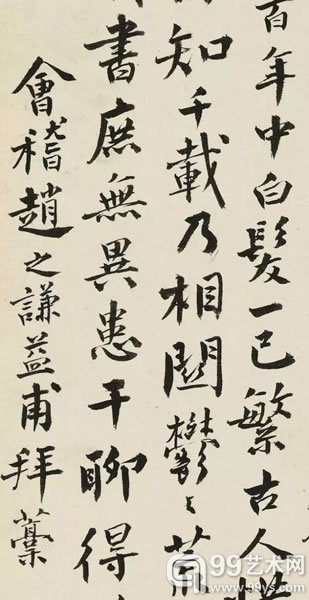 百年中白髮一已繁古人
知千載乃相關鬱々
書庶無異患干聊得
會稽趙之謙益甫拜藁
99艺术网
www.99ys.com